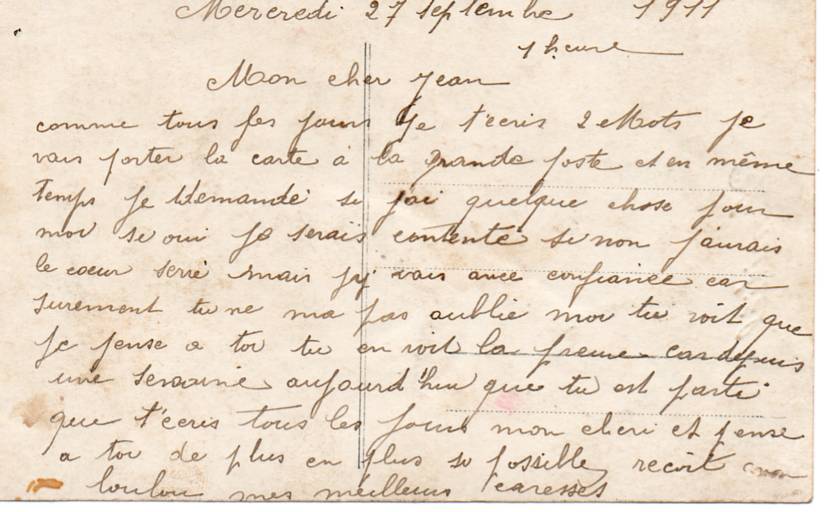 Mercredi 27 septembre 1911
1 heure
Mon cher Jean
comme tous les jours je t'ecris 2 Mots je
vais porter la carte à la grande poste et en même
temps je demande si jai quelque chose pour
moi si oui je serais contente si non j'aurais
le coeur serré mais jy vais avec confiance car
surement tu ne ma pas oublie moi tu voit que
je pense a toi tu en voit la preuve car depuis
une semaine aujourd'hui que tu est parti
que t'ecris tous les jours mon cheri et pense
a toi de plus en plus si possible recoit mon
loulou mes meilleurs caresses